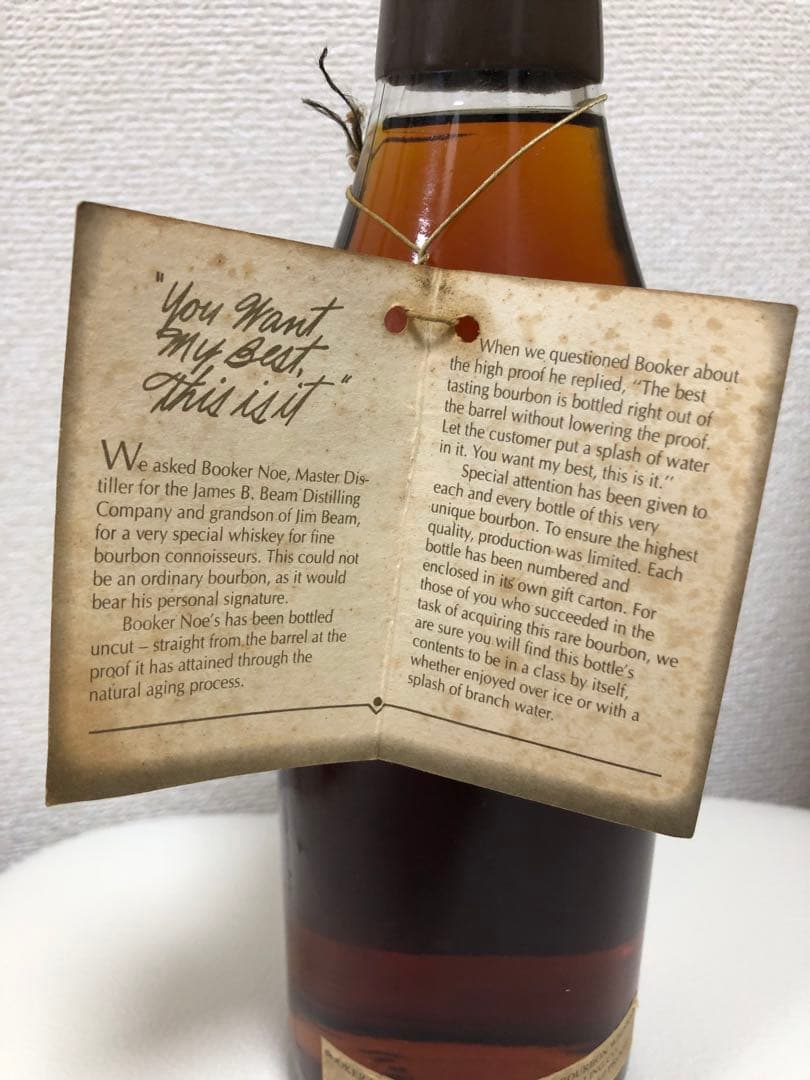 "You Want
My Best,
this is it"
We asked Booker Noe, Master Dis-
tiller for the James B. Beam Distilling
Company and grandson of Jim Beam,
for a very special whiskey for fine
bourbon connoisseurs. This could not
be an ordinary bourbon, as it would
bear his personal signature.
Booker Noe's has been bottled
uncut – straight from the barrel at the
proof it has attained through the
natural aging process.
When we questioned Booker about
the high proof he replied, "The best
tasting bourbon is bottled right out of
the barrel without lowering the proof.
Let the customer put a splash of water
in it. You want my best, this is it."
Special attention has been given to
each and every bottle of this very
unique bourbon. To ensure the highest
quality, production was limited. Each
bottle has been numbered and
enclosed in its own gift carton. For
those of you who succeeded in the
task of acquiring this rare bourbon, we
are sure you will find this bottle's
contents to be in a class by itself,
whether enjoyed over ice or with a
splash of branch water.